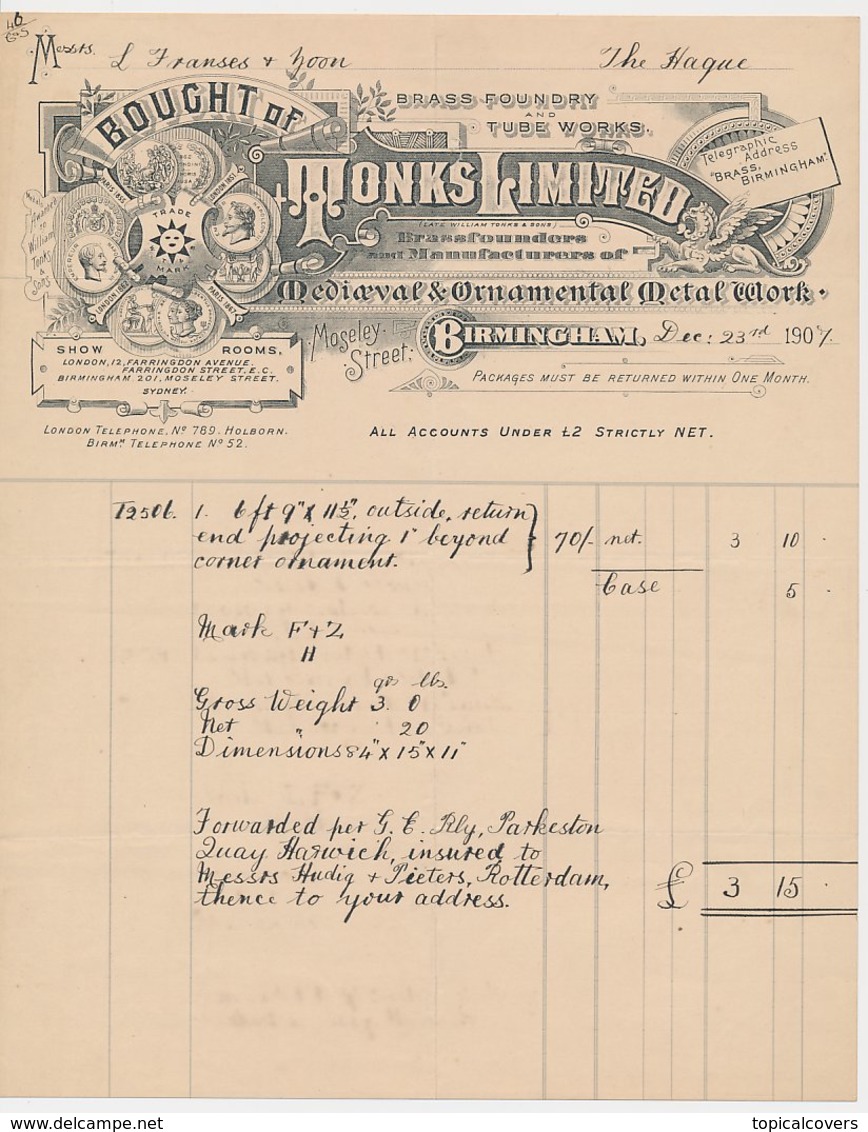 46
Messrs. L Franses + Zoon The Hague
BOUGHT OF
BRASS FOUNDRY
AND
TUBE WORKS.
Telegraphic
Address
"BRASS,
BIRMINGHAM."
TONKS LIMITED
(LATE WILLIAM TONKS & SONS)
Brassfounders
and Manufacturers of
Mediæval & Ornamental Metal Work.
PARIS 1855
LONDON 1851
TRADE
MARK
LONDON 1862
PARIS 1867
Awarded
to
William
Tonks
&
Sons
Moseley
Street,
BIRMINGHAM, Dec: 23rd 1907.
PACKAGES MUST BE RETURNED WITHIN ONE MONTH.
SHOW ROOMS,
LONDON, 12, FARRINGDON AVENUE.
FARRINGDON STREET, E.C.
BIRMINGHAM 201, MOSELEY STREET.
SYDNEY.
LONDON TELEPHONE, No 789. HOLBORN.
BIRMM. TELEPHONE No 52.
ALL ACCOUNTS UNDER £2 STRICTLY NET.
T2506. 1. 6ft 9" X 11½", outside, return
end projecting 1" beyond 70/- net. 3 10 .
corner ornament.
Case 5 .
Mark F+Z
11
qrs lbs.
Gross Weight 3. 0
Net " 20
Dimensions 84" X 15" X 11"
Forwarded per G. E. Rly, Parkeston
Quay Harwich, insured to
Messrs Hudig + Pieters, Rotterdam, £ 3 15 .
thence to your address.
topicalcovers